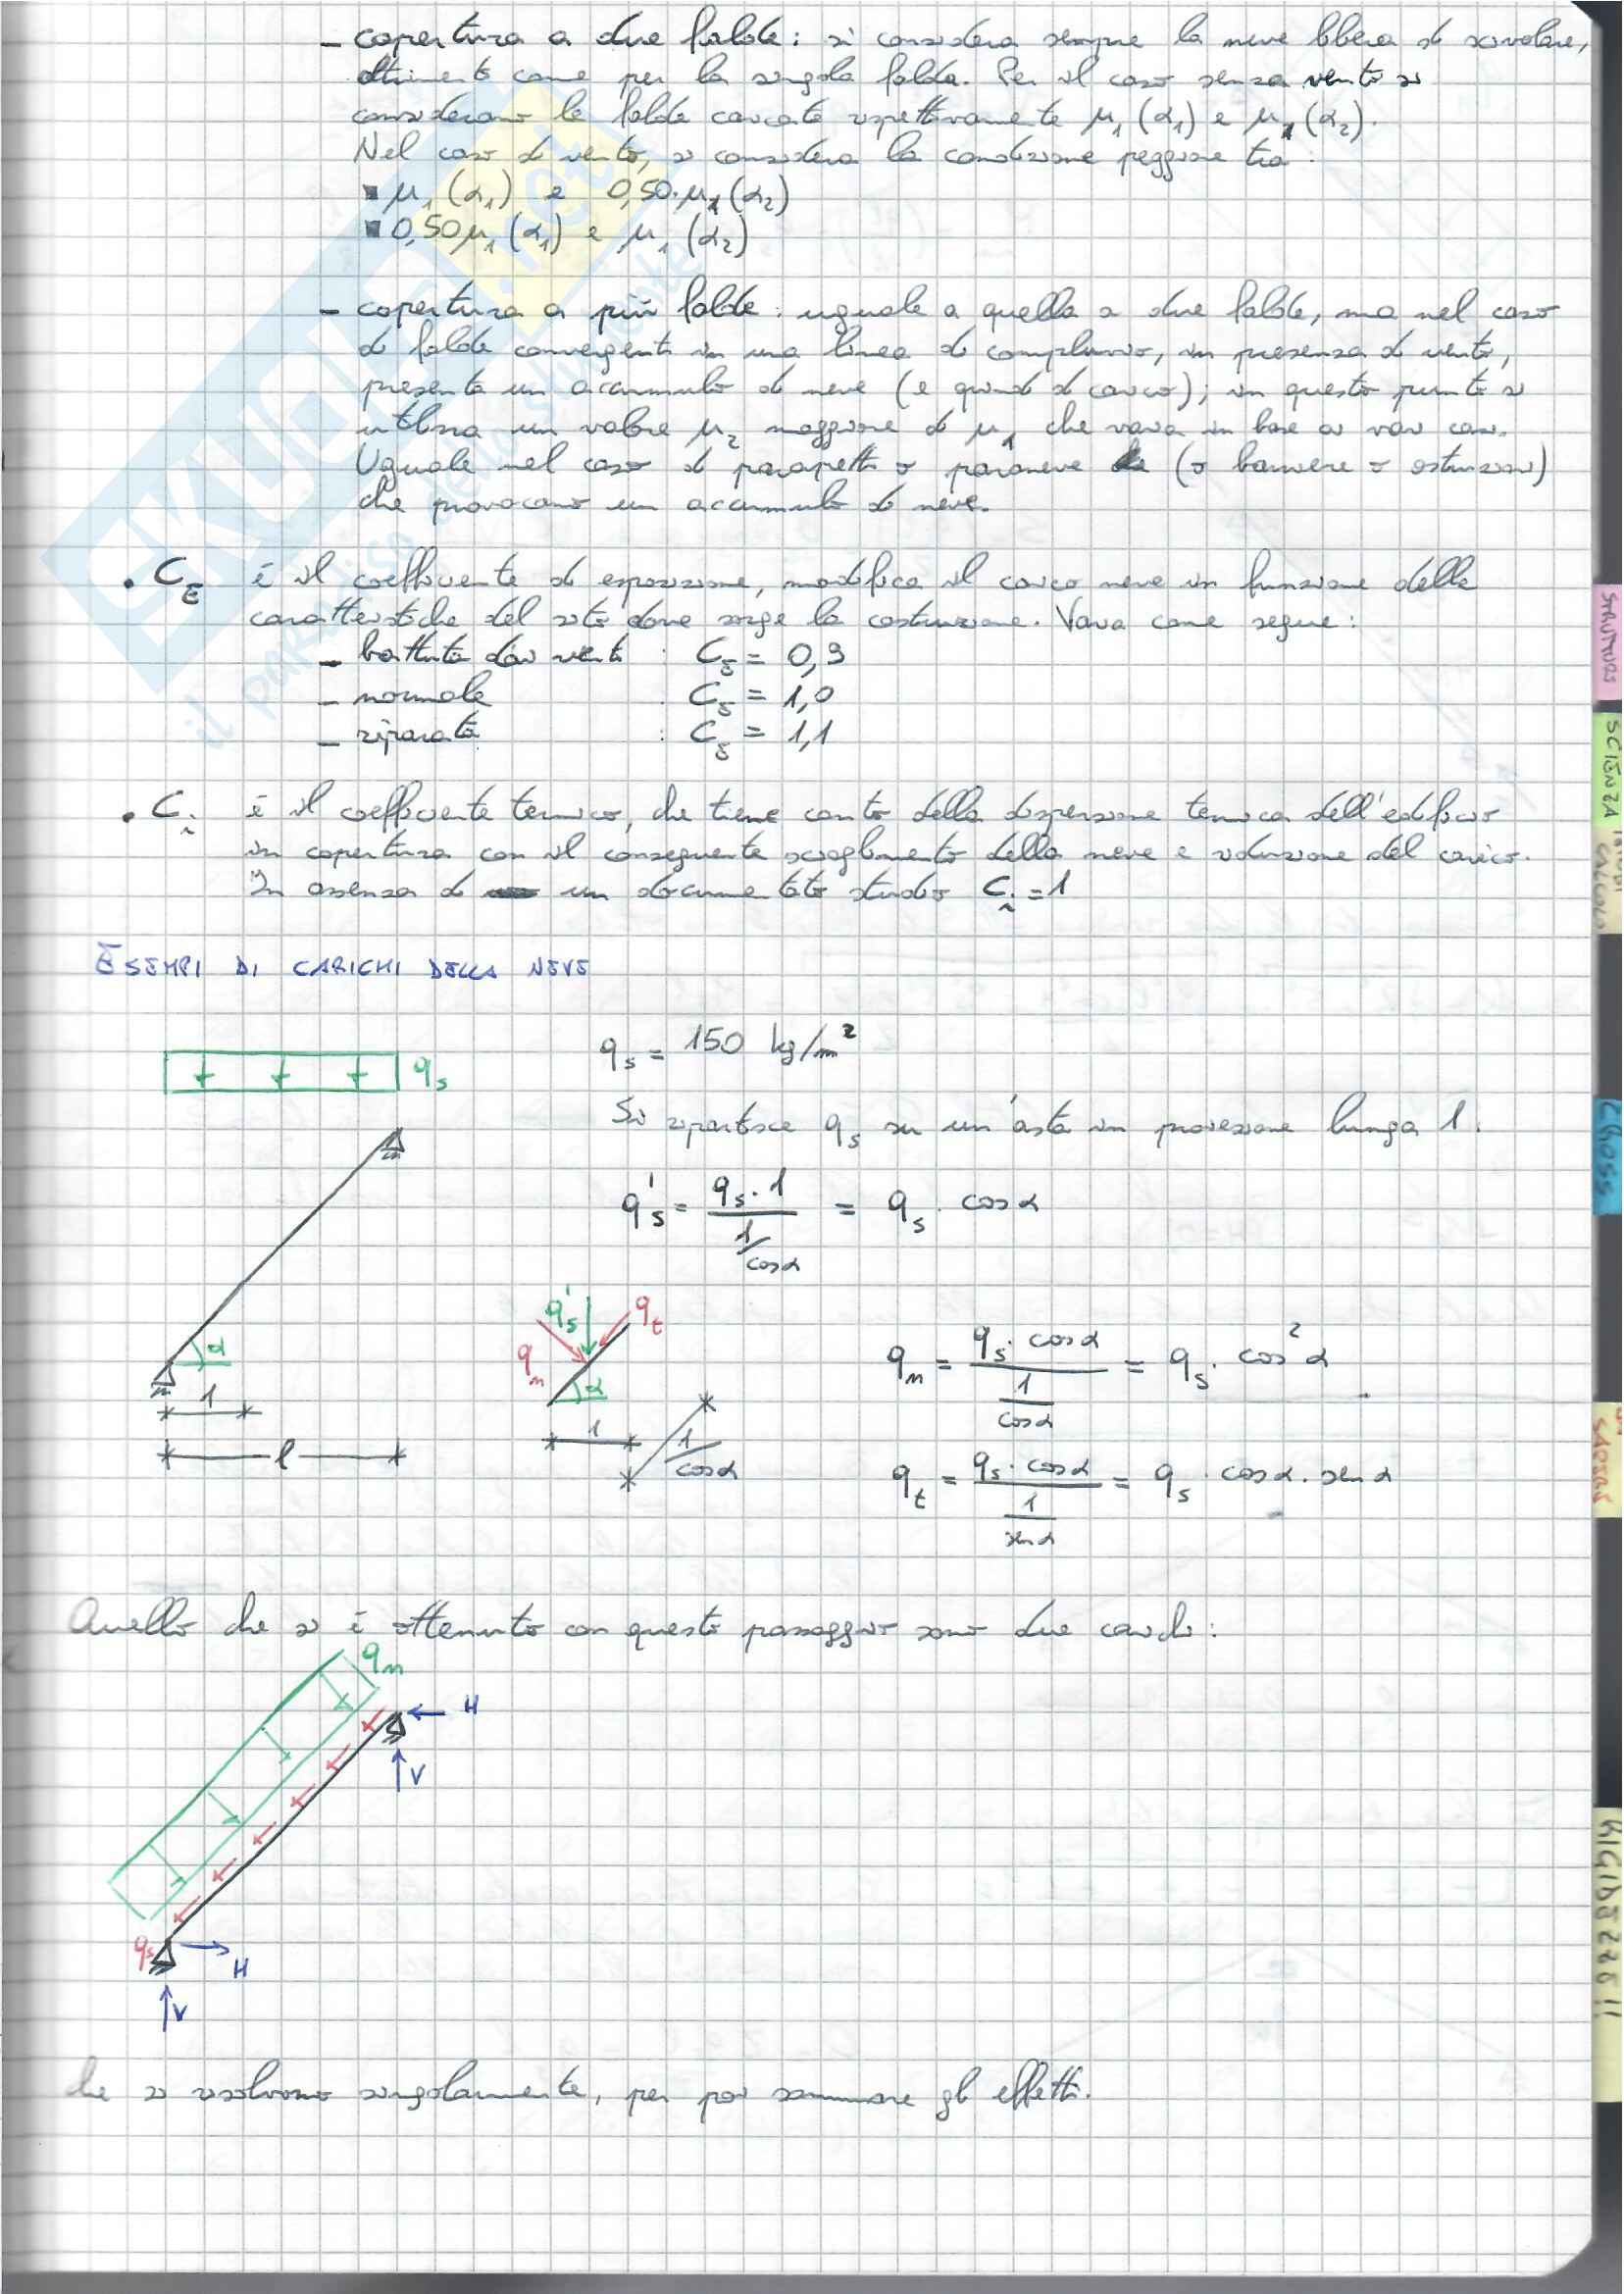 - copertura a due falde: si considera sempre la neve libera di scivolare,
altrimenti come per la singola falda. Per il caso senza vento si
considerano le falde caricate rispettivamente μ₁(α₁) e μ₁(α₂).
Nel caso di vento, si considera la condizione peggiore tra:
▪ μ₁(α₁) e 0,50·μ₁(α₂)
▪ 0,50μ₁(α₁) e μ₁(α₂)
- copertura a più falde: uguale a quella a due falde, ma nel caso
di falde convergenti in una linea di compluvio, in presenza di vento,
presenta un accumulo di neve (e quindi di carico); in questo punto si
utilizza un valore μ₂ maggiore di μ₁ che varia in base ai vari casi.
Uguale nel caso di parapetti o paraneve (o barriere o ostruzioni)
che provocano un accumulo di neve.
• C_E è il coefficiente di esposizione, modifica il carico neve in funzione delle
caratteristiche del sito dove sorge la costruzione. Varia come segue:
- battuta dai venti : C_E = 0,9
- normale : C_E = 1,0
- riparata : C_E = 1,1
• C_i è il coefficiente termico, che tiene conto della dispersione termica dell'edificio
in copertura con il conseguente scioglimento della neve e riduzione del carico.
In assenza di un documentato studio C_i = 1
ESEMPI DI CARICHI DELLA NEVE
q_s
q_s = 150 kg/m²
Si ripartisce q_s su un'asta in proiezione lunga 1.
q'_s = q_s · 1 / (1/cosα) = q_s · cosα
α
1
l
q'_s
q_t
q_n
α
1
1/cosα
q_n = q_s · cosα / (1/cosα) = q_s · cos²α
q_t = q_s · cosα / (1/senα) = q_s · cosα · senα
Quello che si è ottenuto con questo passaggio sono due carichi:
q_n
H
V
q_s
H
V
che si risolvono singolarmente, per poi sommare gli effetti.
SCIENZA
CALCOLO
CROSS
RIGIDEZZE!!
SKUOLA.net
il paradiso dello studente